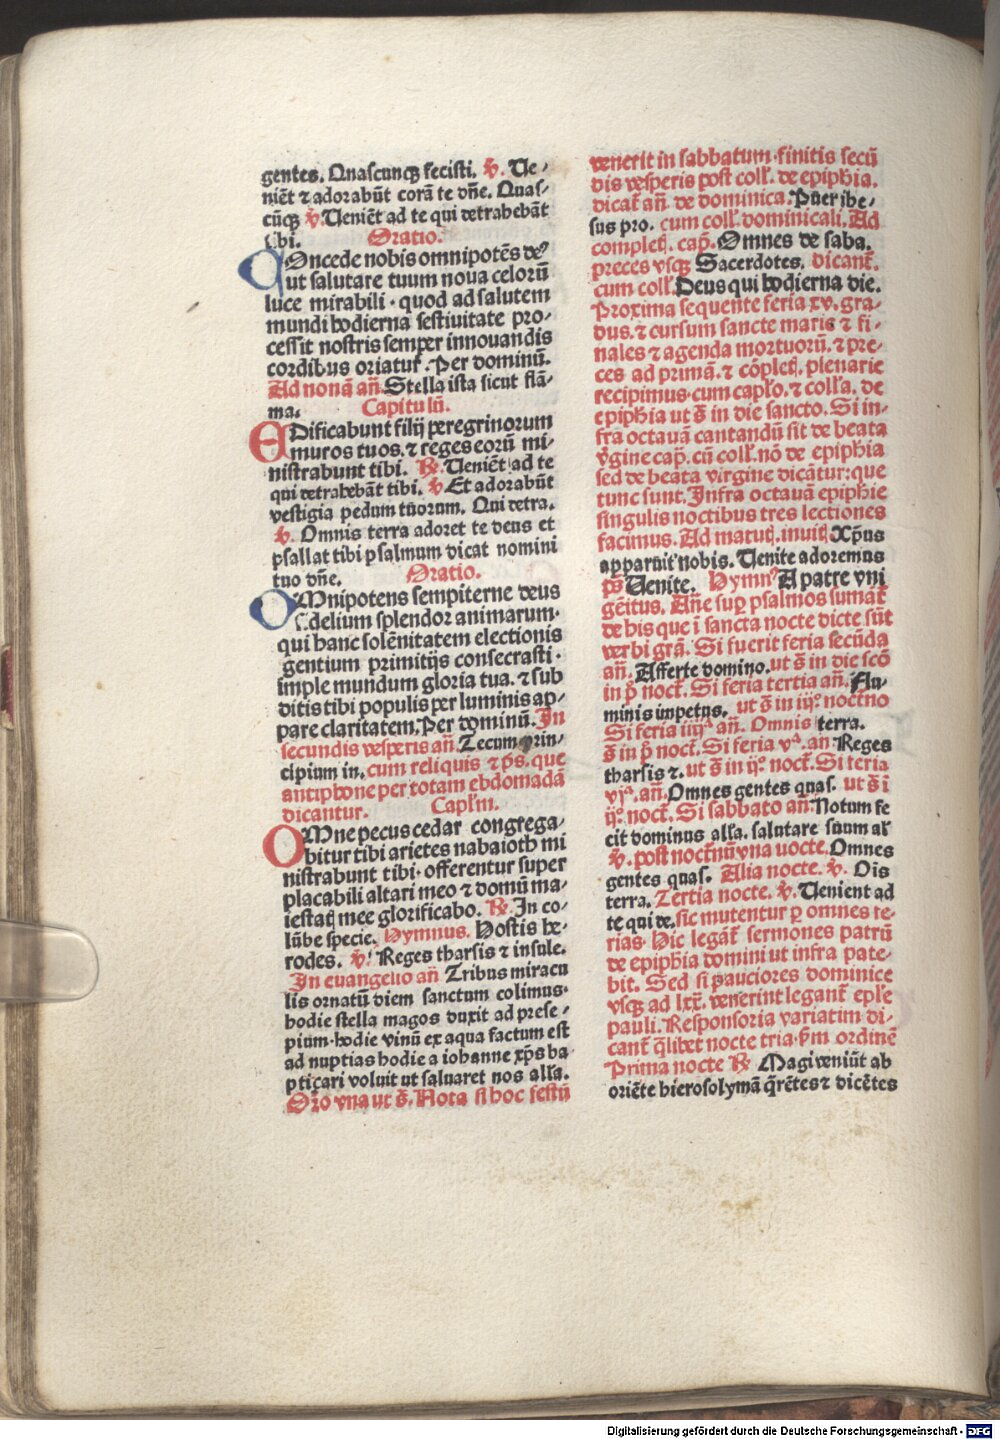 gentes. Quascunqꝫ fecisti. ℣. Ue⸗
niẽt ⁊ adorabũt corã te dñe. Quas⸗
cũqꝫ ℣. Ueniẽt ad te qui detrahebãt
tibi. Oratio.
COncede nobis omnipotẽs deꝰ
ut salutare tuum noua celorũ
luce mirabili · quod ad salutem
mundi hodierna festiuitate pro⸗
cessit nostris semper innouandis
cordibus oriatur̃. Per dominũ.
Ad nonã añ. Stella ista sicut flã⸗
ma. Capitulũ.
EDificabunt filij peregrinorum
muros tuos. ⁊ reges eorũ mi⸗
nistrabunt tibi. ℟. Ueniẽt ad te
qui detrahebãt tibi. ℣ Et adorabũt
vestigia pedum tuorum. Qui detra.
℣. Omnis terra adoret te deus et
psallat tibi psalmum dicat nomini
tuo dñe. Oratio.
OMnipotens sempiterne deus
fidelium splendor animarum·
qui hanc solẽnitatem electionis
gentium primitijs consecrasti ·
imple mundum gloria tua. ⁊ sub
ditis tibi populis per luminis ap⸗
pare claritatem. Per dominũ. In
secundis vesperis añ. Tecum prin⸗
cipium in. cum reliquis ⁊ p̃s. que
antiphone per totam ebdomadã
dicantur. Capl'm.
OMne pecus cedar congrega⸗
bitur tibi arietes nabaioth mi
nistrabunt tibi · offerentur super
placabili altari meo ⁊ domũ ma⸗
iestatꝭ mee glorificabo. ℟. In co⸗
lũbe specie. Hymnus. Hostis he⸗
rodes. ℣. Reges tharsis ⁊ insule.
In euangelio añ Tribus miracu
lis ornatũ diem sanctum colimus·
hodie stella magos duxit ad prese⸗
pium·hodie vinũ ex aqua factum est
ad nuptias hodie a iohanne xp̃s ba⸗
ptiçari voluit ut saluaret nos all'a.
Or̃o vna ut s̃. Nota si hoc festũ
venerit in sabbatum·finitis secũ
dis vesperis post coll'. de epiph̃ia.
dicat̃ añ. de dominica. Puer ihe⸗
sus pro. cum coll'. dominicali. Ad
completꝭ. cap̃. Omnes de saba.
preces vsqꝫ Sacerdotes. dicant̃.
cum coll'. Deus qui hodierna die.
Proxima sequente feria xv. gra⸗
dus. ⁊ cursum sancte marie ⁊ fi⸗
nales ⁊ agenda mortuorũ. ⁊ pre⸗
ces ad primã. ⁊ cõpletꝭ. plenarie
recipimus·cum capl'o. ⁊ coll'a. de
epiphia ut s̃ in die sancto. Si in⸗
fra octauã cantandũ sit de beata
v̓gine cap̃. cũ coll'. nõ de epiph̃ia
sed de beata virgine dicãtur: que
tunc sunt. Infra octauã epiph̃ie
singulis noctibus tres lectiones
facimus. Ad matutꝭ. inuitꝭ Xp̃us
apparuit nobis. Uenite adoremus
p̃s Uenite. Hymnꝰ A patre vni
gẽitus. Añe suꝑ psalmos sumãt̃
de his que ĩ sancta nocte dicte sũt
verbi grã. Si fuerit feria secũda
añ. Afferte domino. ut s̃ in die scõ
in p̃ noct̃. Si feria tertia añ. Flu⸗
minis impetus. ut s̃ in ijº noct̃no
Si feria iiijª añ. Omnis terra.
s̃ in p̃ noct̃. Si feria vª. añ Reges
tharsis ⁊. ut s̃ in ijº noct̃. Si feria
vjª. añ. Omnes gentes quas. ut s̃ ĩ
ijº noct̃. Si sabbato añ. Notum fe
cit dominus all'a. salutare suum al'
℣. post noct̃nũ vna nocte. Omnes
gentes quas. Alia nocte. ℣. Oĩs
terra. Tertia nocte. ℣. Uenient ad
te qui de. sic mutentur ꝑ omnes fe⸗
rias· Hic legãt̃ sermones patrũ
de epiph̃ia domini ut infra pate⸗
bit. Sed si pauciores dominice
vsqꝫ ad lxx̃. venerint legant̃ epl'e
pauli. Responsoria variatim di⸗
cant̃ q̃libet nocte tria · ẜm ordinẽ
Prima nocte ℟ Magi veniũt ab
oriẽte hierosolymã q̃rẽtes ⁊ dicẽtes
Digitalisierung gefördert durch die Deutsche Forschungsgemeinschaft - DFG